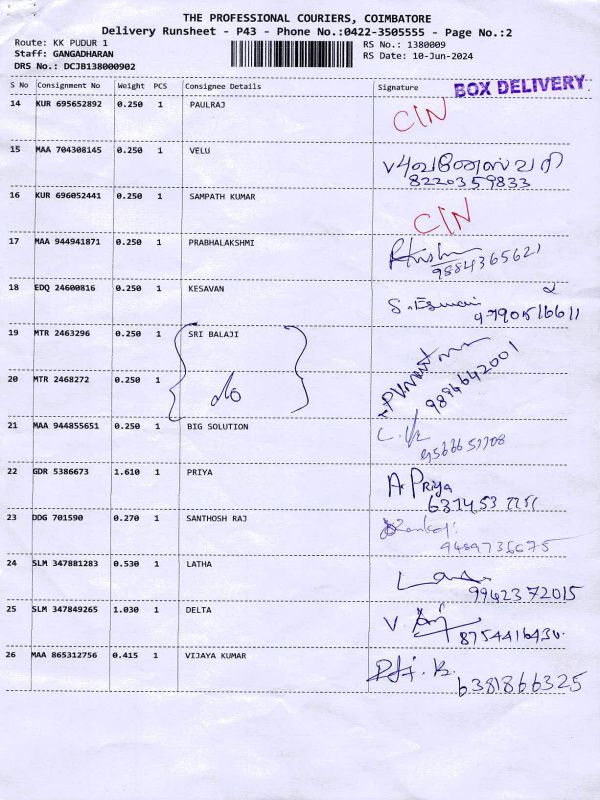 THE PROFESSIONAL COURIERS, COIMBATORE
Delivery Runsheet - P43 - Phone No.:0422-3505555 - Page No.:2
Route: KK PUDUR 1
RS No.: 1380009
Staff: GANGADHARAN
RS Date: 10-Jun-2024
DRS No.: DCJB138000902
S No Consignment No Weight PCS Consignee Details Signature BOX DELIVERY
14 KUR 695652892 0.250 1 PAULRAJ CIN
15 MAA 704308145 0.250 1 VELU
8220359833
16 KUR 696052441 0.250 1 SAMPATH KUMAR CIN
17 MAA 944941871 0.250 1 PRABHALAKSHMI
9884365621
18 EDQ 24600816 0.250 1 KESAVAN
9790516611
19 MTR 2463296 0.250 1 SRI BALAJI
20 MTR 2468272 0.250 1 do
9894642001
21 MAA 944855651 0.250 1 BIG SOLUTION
22 GDR 5386673 1.610 1 PRIYA A. Priya
23 DDG 701590 0.270 1 SANTHOSH RAJ
9489736675
24 SLM 347881283 0.530 1 LATHA
9942372015
25 SLM 347849265 1.030 1 DELTA
8754416430
26 MAA 865312756 0.415 1 VIJAYA KUMAR
6381866325